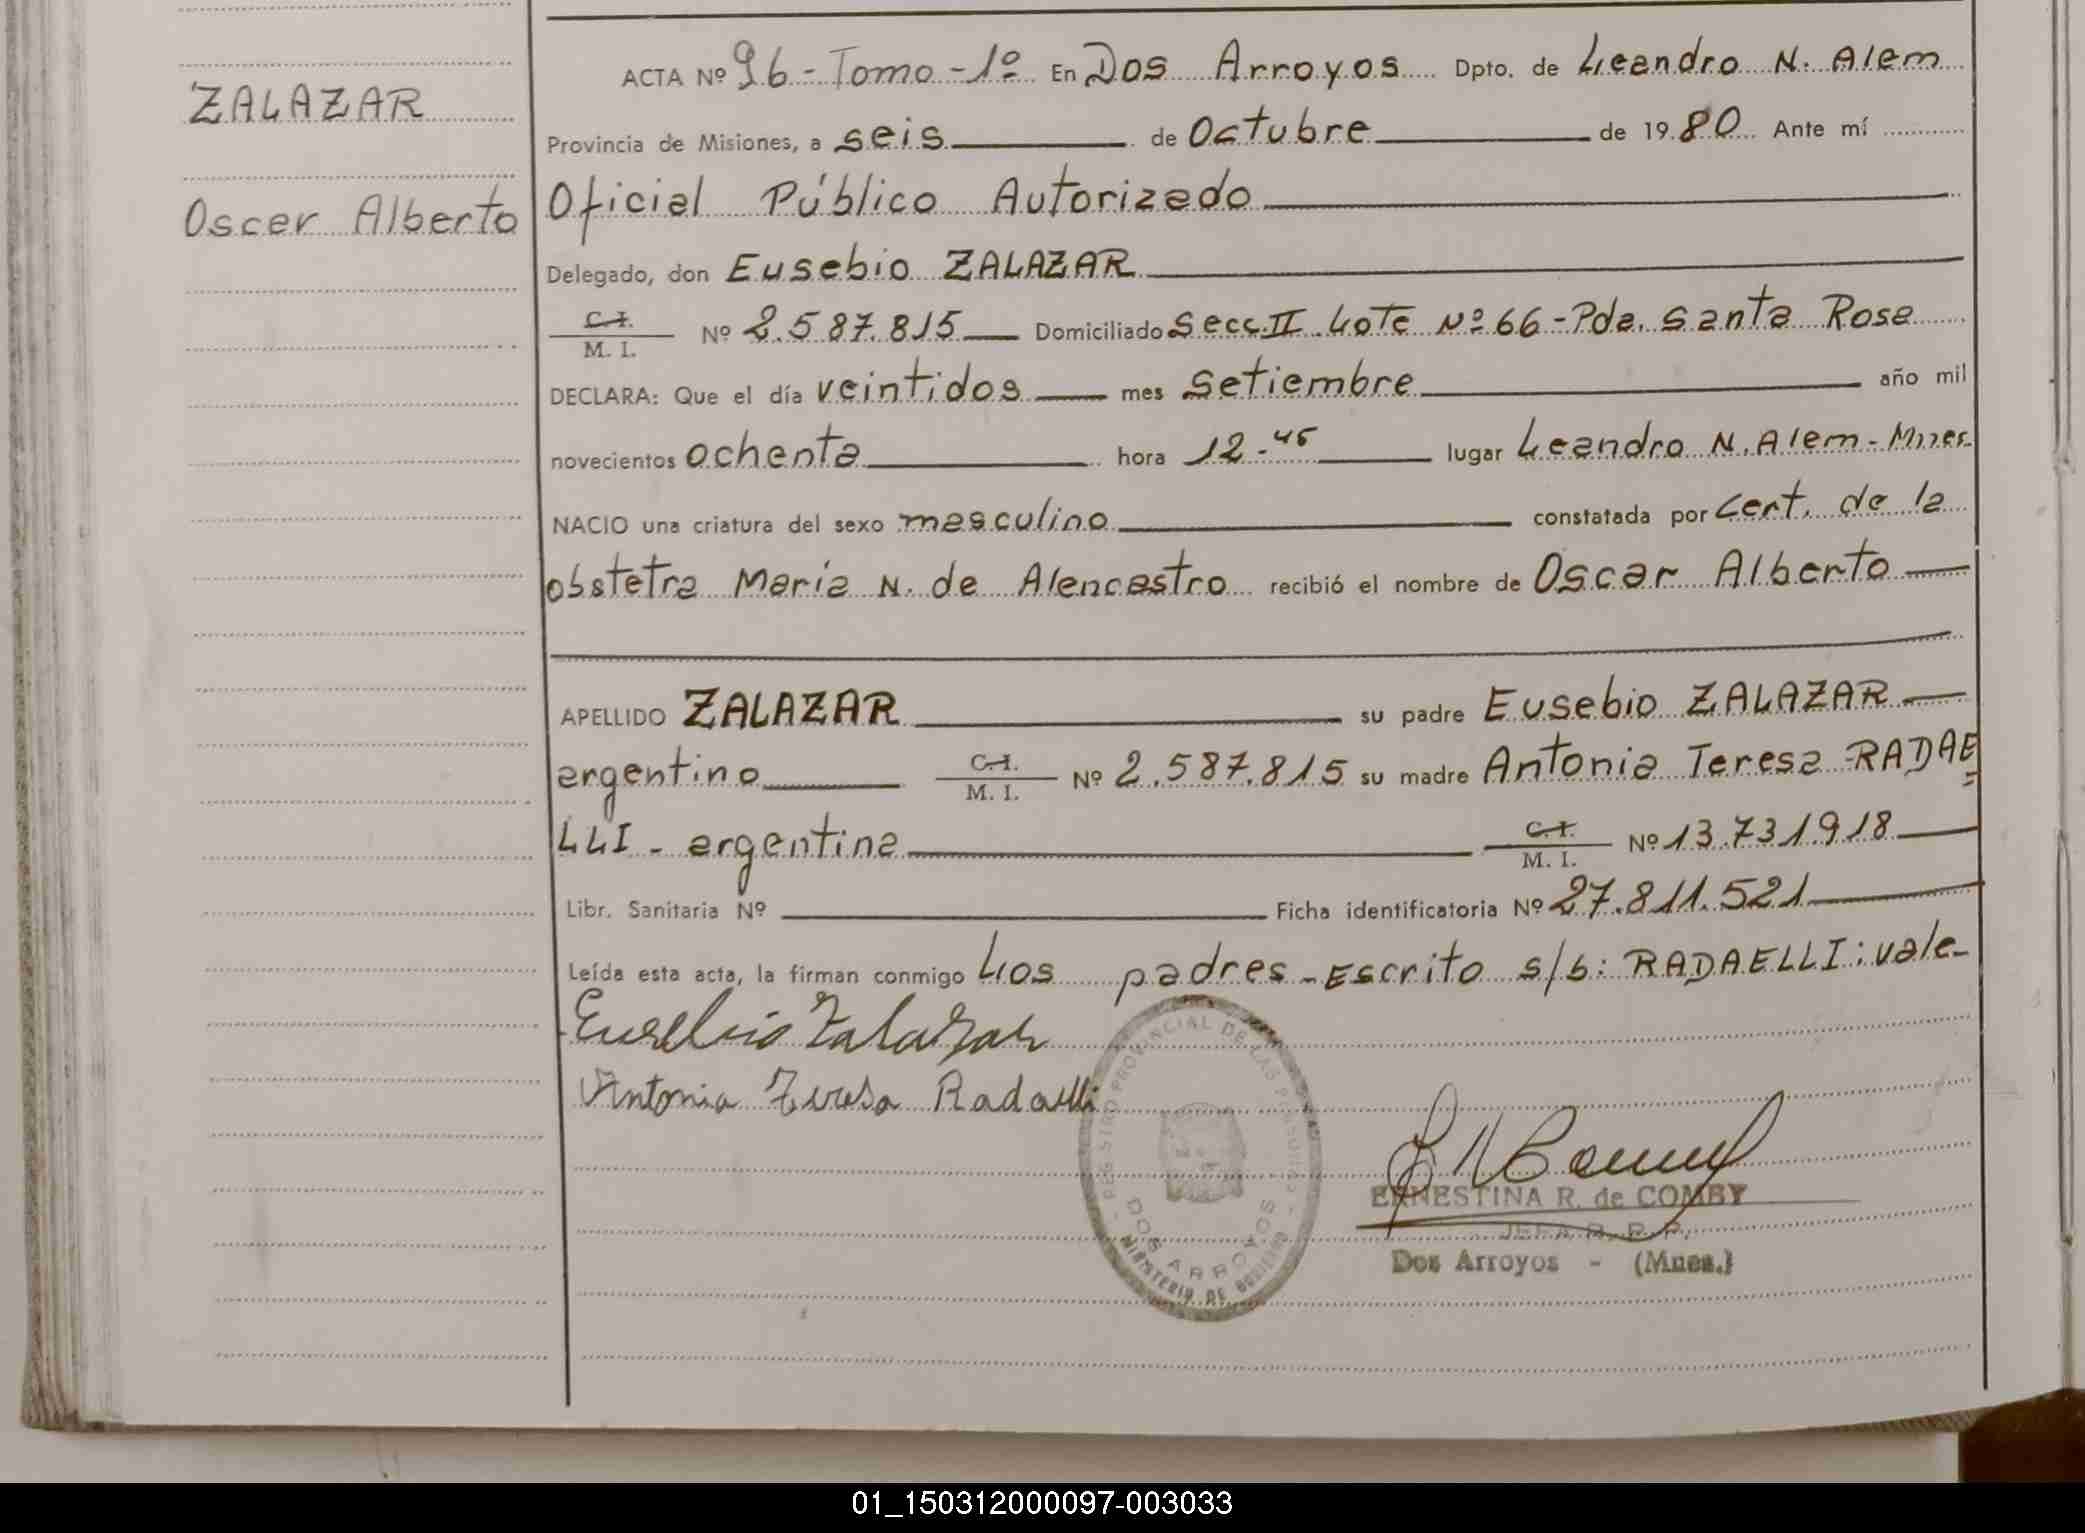 ZALAZAR
Oscar Alberto
ACTA Nº 96 - Tomo - 1º En Dos Arroyos Dpto. de Leandro N. Alem
Provincia de Misiones, a seis de Octubre de 1980 Ante mí
Oficial Público Autorizado
Delegado, don Eusebio ZALAZAR
C. I.
M. I. Nº 2.587.815 Domiciliado Secc. II Lote Nº 66 - Pda. Santa Rosa
DECLARA: Que el día veintidos mes setiembre año mil
novecientos ochenta hora 12-45 lugar Leandro N. Alem - Mnes.
NACIO una criatura del sexo masculino constatada por Cert. de la
obstetra María N. de Alencastro recibió el nombre de Oscar Alberto
APELLIDO ZALAZAR su padre Eusebio ZALAZAR
argentino C. I. M. I. Nº 2.587.815 su madre Antonia Teresa RADAE=
LLI - argentina C. I. M. I. Nº 13.731.918
Libr. Sanitaria Nº Ficha identificatoria Nº 27.811.521
Leída esta acta, la firman conmigo Los padres - Escrito s/b: RADAELLI: vale-
Eusebio Zalazar
Antonia Teresa Radaelli
REGISTRO PROVINCIAL DE LAS PERSONAS
DOS ARROYOS
MINISTERIO DE GOBIERNO
ERNESTINA R. de COMBY
JEFA R. P. P.
Dos Arroyos - (Mnes.)
01_150312000097-003033